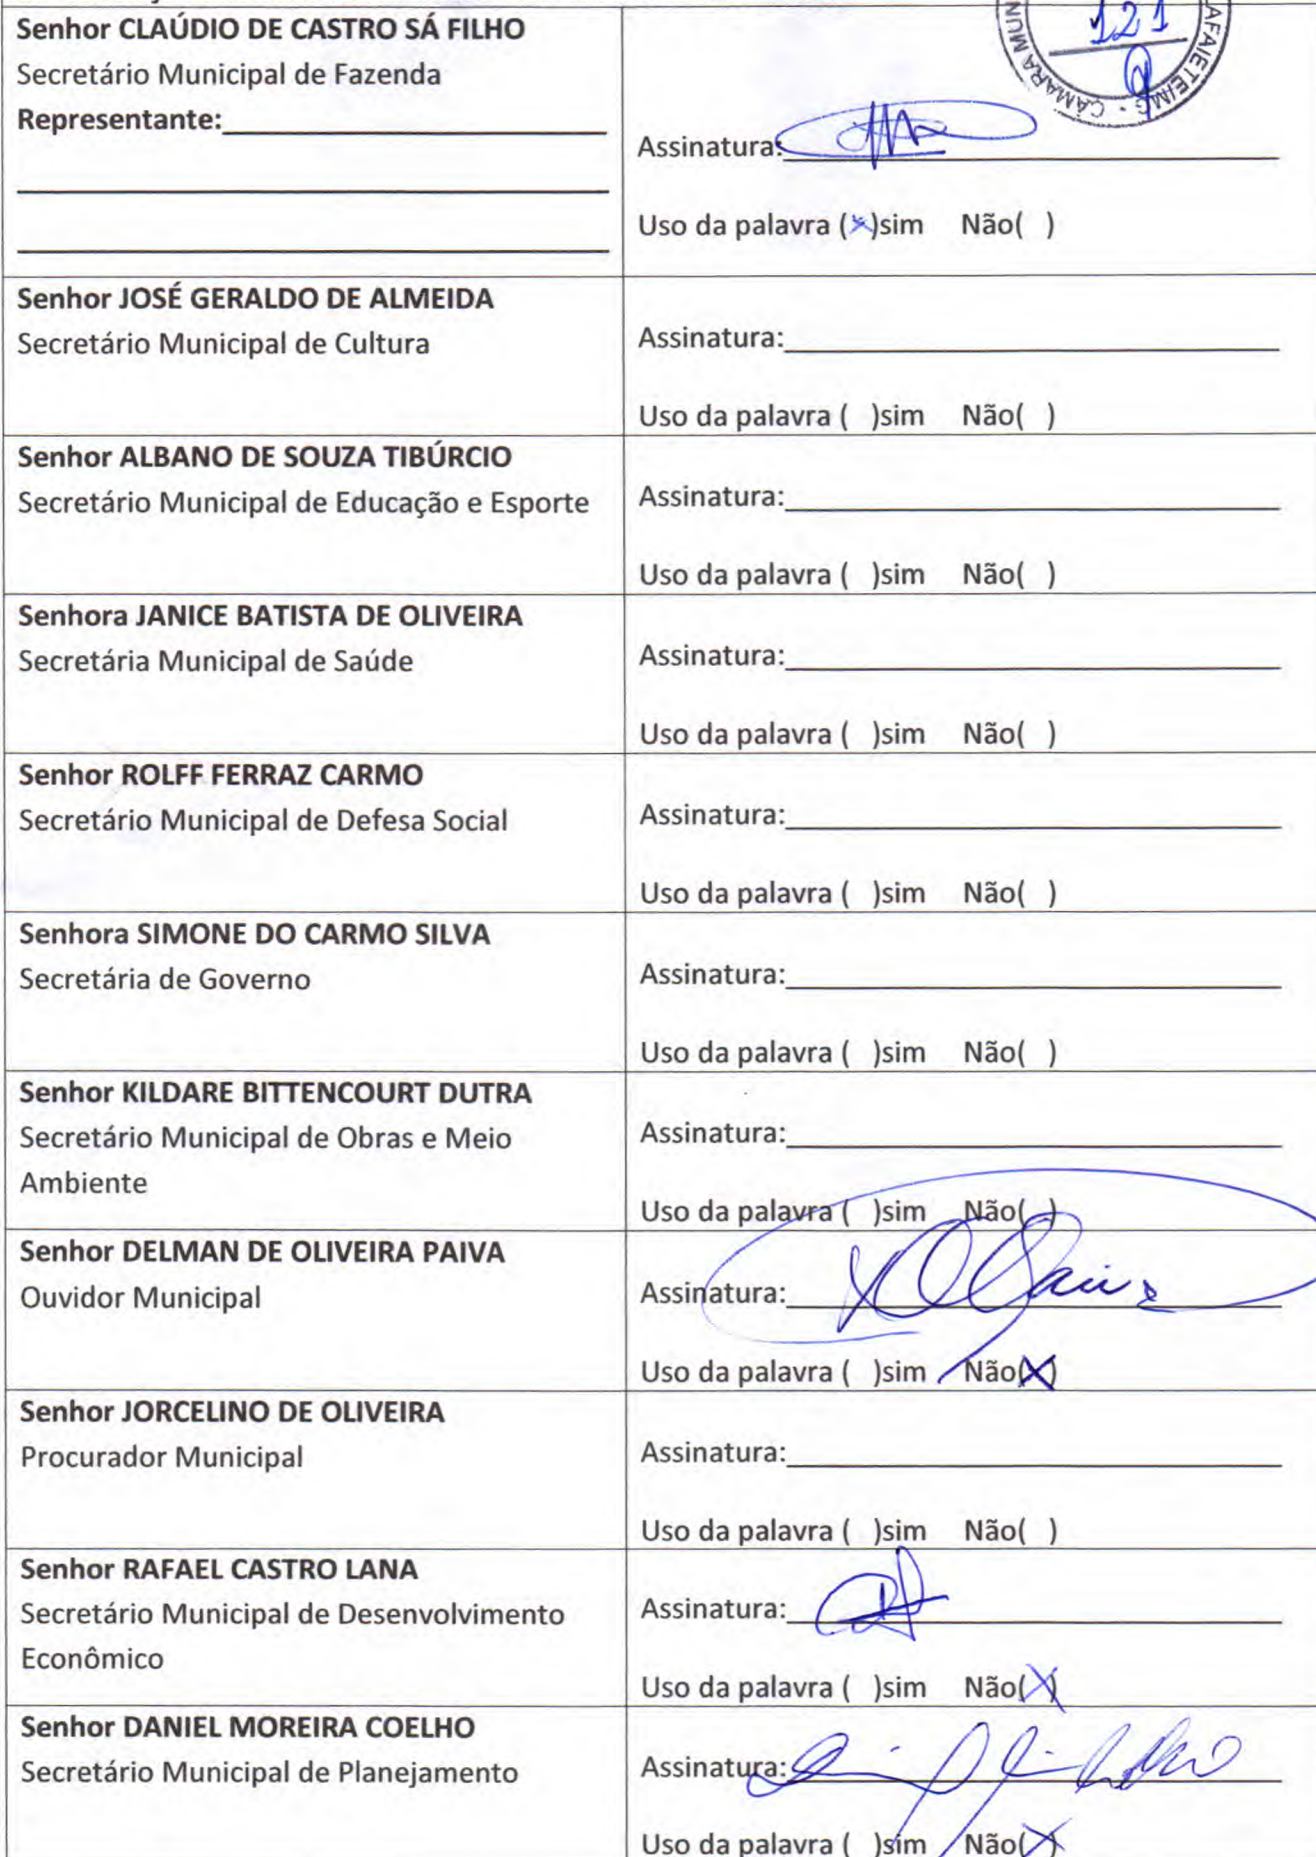 Senhor CLAÚDIO DE CASTRO SÁ FILHO
Secretário Municipal de Fazenda
Representante:
Assinatura:
Uso da palavra (x)sim Não( )
CÂMARA MUN
LAFAIETE/MG
121
Senhor JOSÉ GERALDO DE ALMEIDA
Secretário Municipal de Cultura
Assinatura:
Uso da palavra ( )sim Não( )
Senhor ALBANO DE SOUZA TIBÚRCIO
Secretário Municipal de Educação e Esporte
Assinatura:
Uso da palavra ( )sim Não( )
Senhora JANICE BATISTA DE OLIVEIRA
Secretária Municipal de Saúde
Assinatura:
Uso da palavra ( )sim Não( )
Senhor ROLFF FERRAZ CARMO
Secretário Municipal de Defesa Social
Assinatura:
Uso da palavra ( )sim Não( )
Senhora SIMONE DO CARMO SILVA
Secretária de Governo
Assinatura:
Uso da palavra ( )sim Não( )
Senhor KILDARE BITTENCOURT DUTRA
Secretário Municipal de Obras e Meio
Ambiente
Assinatura:
Uso da palavra ( )sim Não( )
Senhor DELMAN DE OLIVEIRA PAIVA
Ouvidor Municipal
Assinatura:
Uso da palavra ( )sim Não(X)
Senhor JORCELINO DE OLIVEIRA
Procurador Municipal
Assinatura:
Uso da palavra ( )sim Não( )
Senhor RAFAEL CASTRO LANA
Secretário Municipal de Desenvolvimento
Econômico
Assinatura:
Uso da palavra ( )sim Não(X)
Senhor DANIEL MOREIRA COELHO
Secretário Municipal de Planejamento
Assinatura:
Uso da palavra ( )sim Não(X)